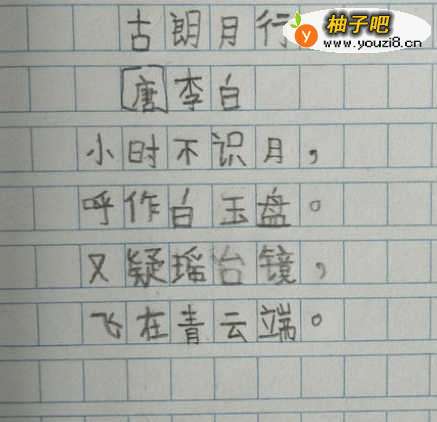 古朗月行
[唐]李白
小时不识月，
呼作白玉盘。
又疑瑶台镜，
飞在青云端。
柚子吧
www.youzi8.cn